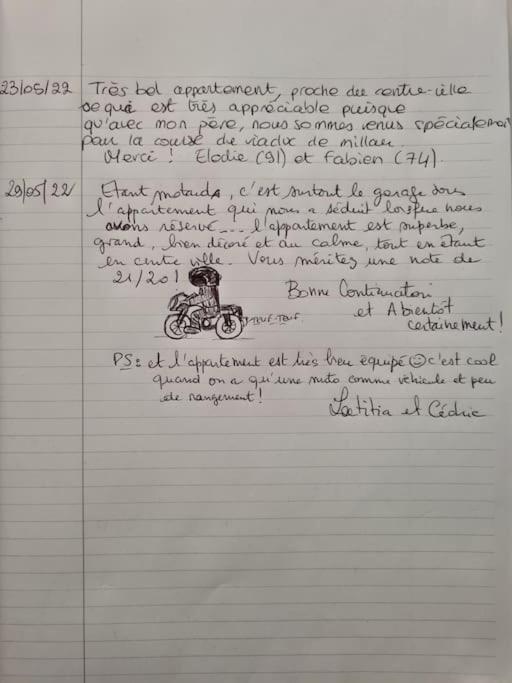 23/05/22 Très bel appartement, proche du centre-ville
ce qui est très appréciable puisque
qu'avec mon père, nous sommes venus spécialement
pour la course du viaduc de millau.
Merci ! Elodie (91) et Fabien (74).
29/05/22 Etant motards, c'est surtout le garage sous
l'appartement qui nous a séduit lorsque nous
avons réservé... l'appartement est superbe,
grand, bien décoré et au calme, tout en étant
en centre ville. Vous méritez une note de
21/20!
TEUF-TEUF.
Bonne Continuation
et A bientôt
certainement !
PS: et l'appartement est très bien équipé ☺ c'est cool
quand on a qu'une moto comme véhicule et peu
de rangement !
Laetitia et Cédric